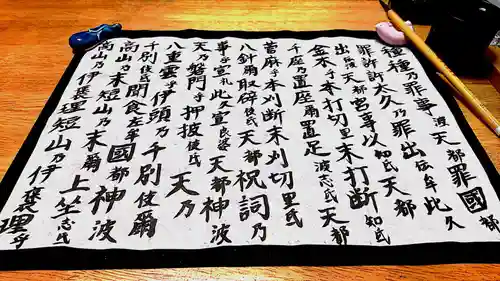 種種乃罪事波天都罪國都
罪許許太久乃罪出伝牟此久
出波天都宮事以知氐天都
金木乎本打切里末打断知氐
千座乃置座爾置足波志氐天都
菅麻乎本刈断末刈切里氐
八針爾取辟伎氐天都祝詞乃
事乎宣礼此久宣良婆天都神波
天乃磐門乎押披伎氐天乃
八重雲乎伊頭乃千別伎爾
千別伎氐聞食左牟國都神波
高山乃末短山乃末爾上坐志氐
高山乃伊褒理短山乃伊褒理乎